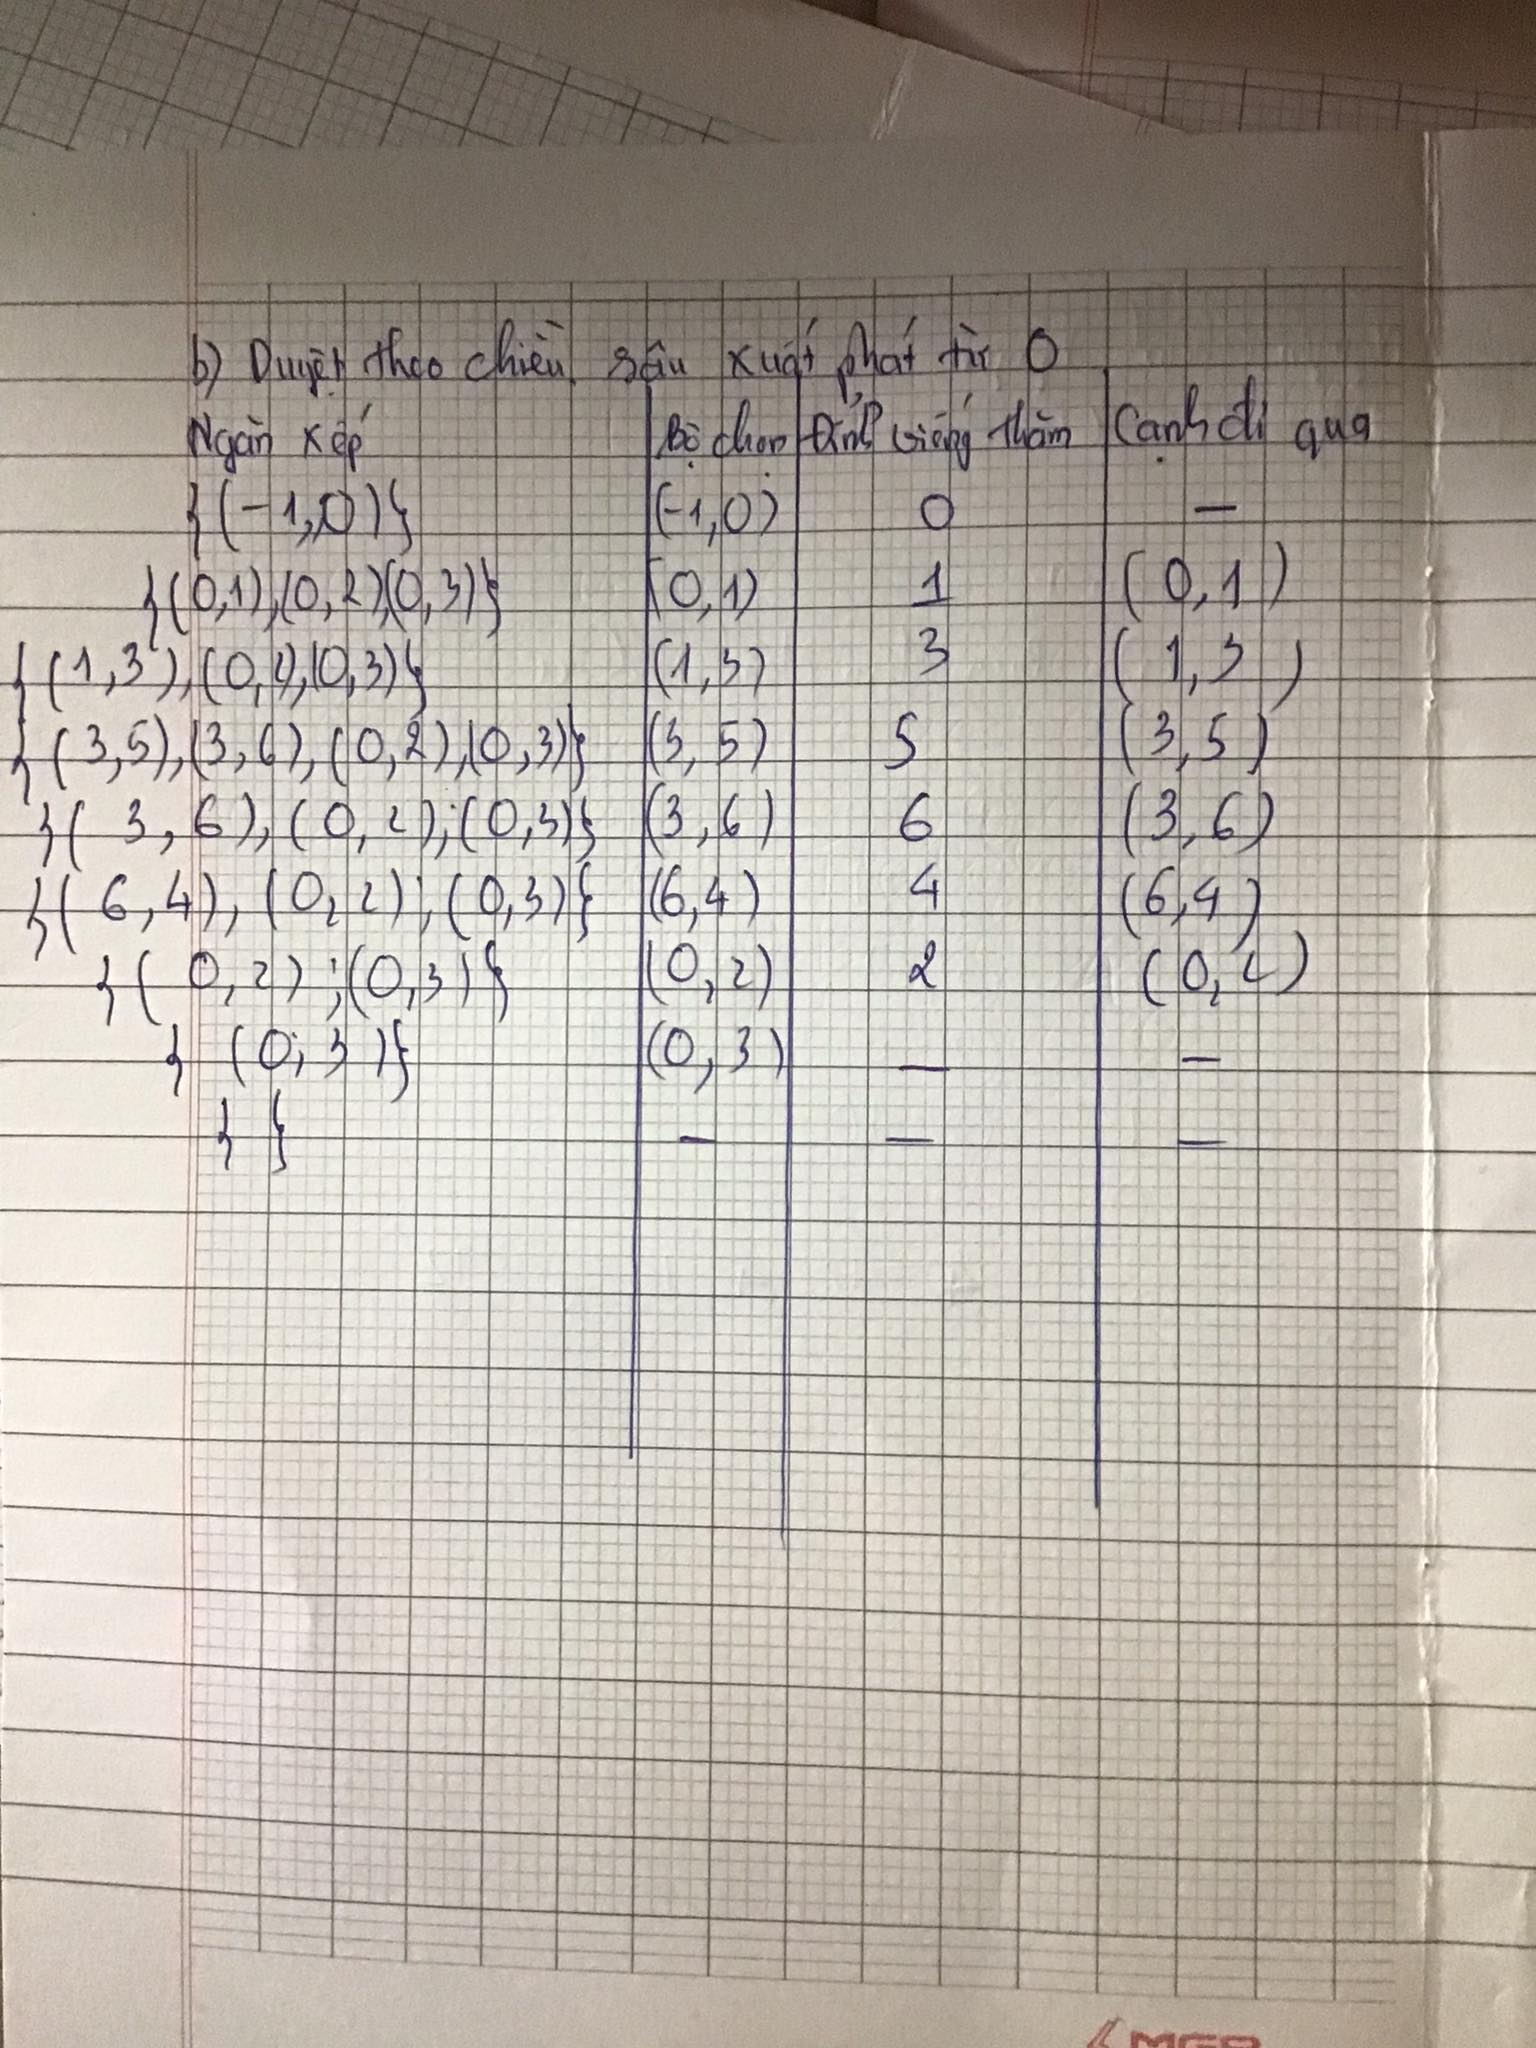 b) Duyệt theo chiều sâu xuất phát từ 0
Ngăn xếp Bộ chọn Đỉnh viếng thăm Cạnh đi qua
{(-1,0)} (-1,0) 0 –
{(0,1),(0,2),(0,3)} (0,1) 1 (0,1)
{(1,3),(0,2),(0,3)} (1,3) 3 (1,3)
{(3,5),(3,6),(0,2),(0,3)} (3,5) 5 (3,5)
{(3,6),(0,2);(0,3)} (3,6) 6 (3,6)
{(6,4),(0,2);(0,3)} (6,4) 4 (6,4)
{(0,2);(0,3)} (0,2) 2 (0,2)
{(0;3)} (0,3) – –
{ } – – –